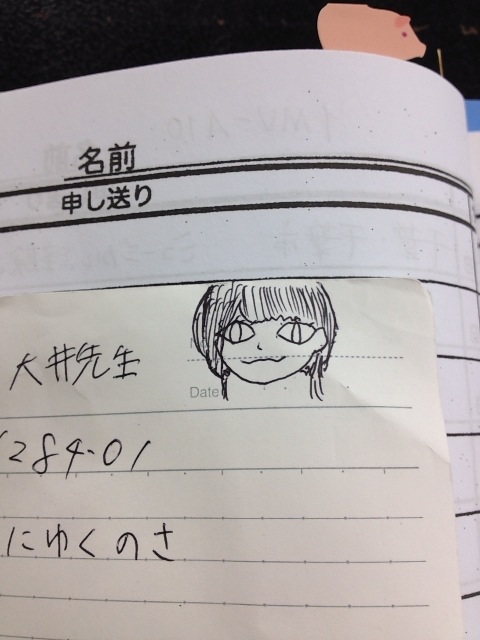 名前
申し送り
大井先生
Date
284-01
にゆくのさ